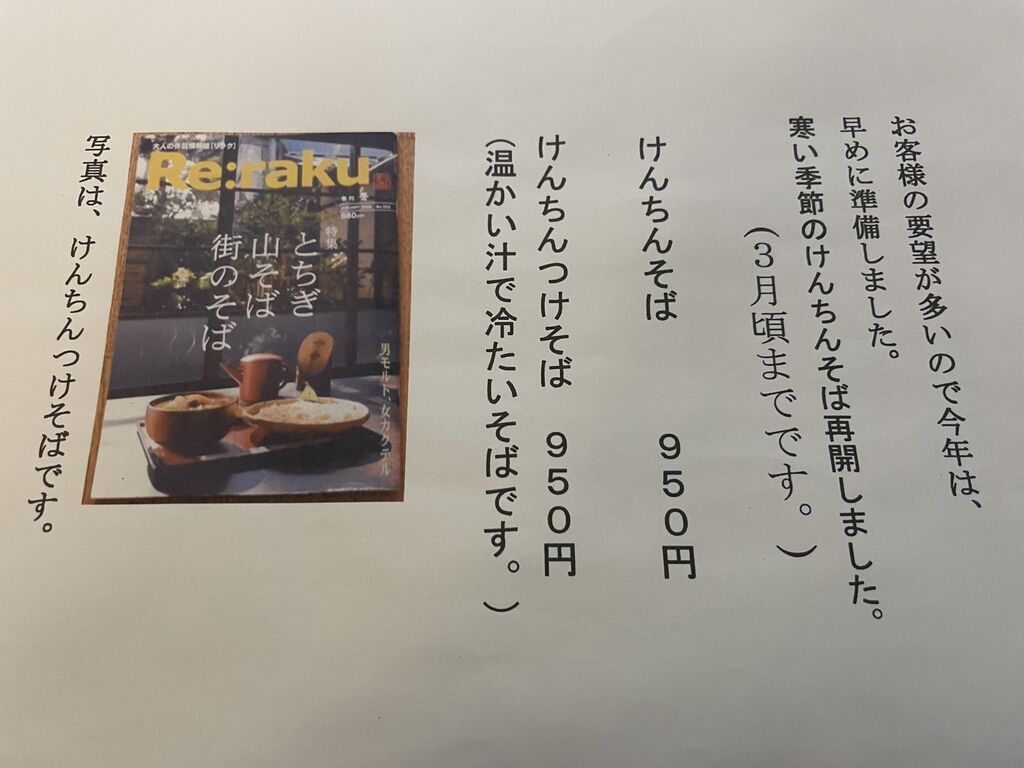 お客様の要望が多いので今年は、
早めに準備しました。
寒い季節のけんちんそば再開しました。
(3月頃までです。)
けんちんそば 950円
けんちんつけそば 950円
(温かい汁で冷たいそばです。)
大人の休日情報誌[リラク]
Re:raku
季刊
680yen
特集
とちぎ
山そば
街のそば
男モルト、女カクテル
写真は、けんちんつけそばです。